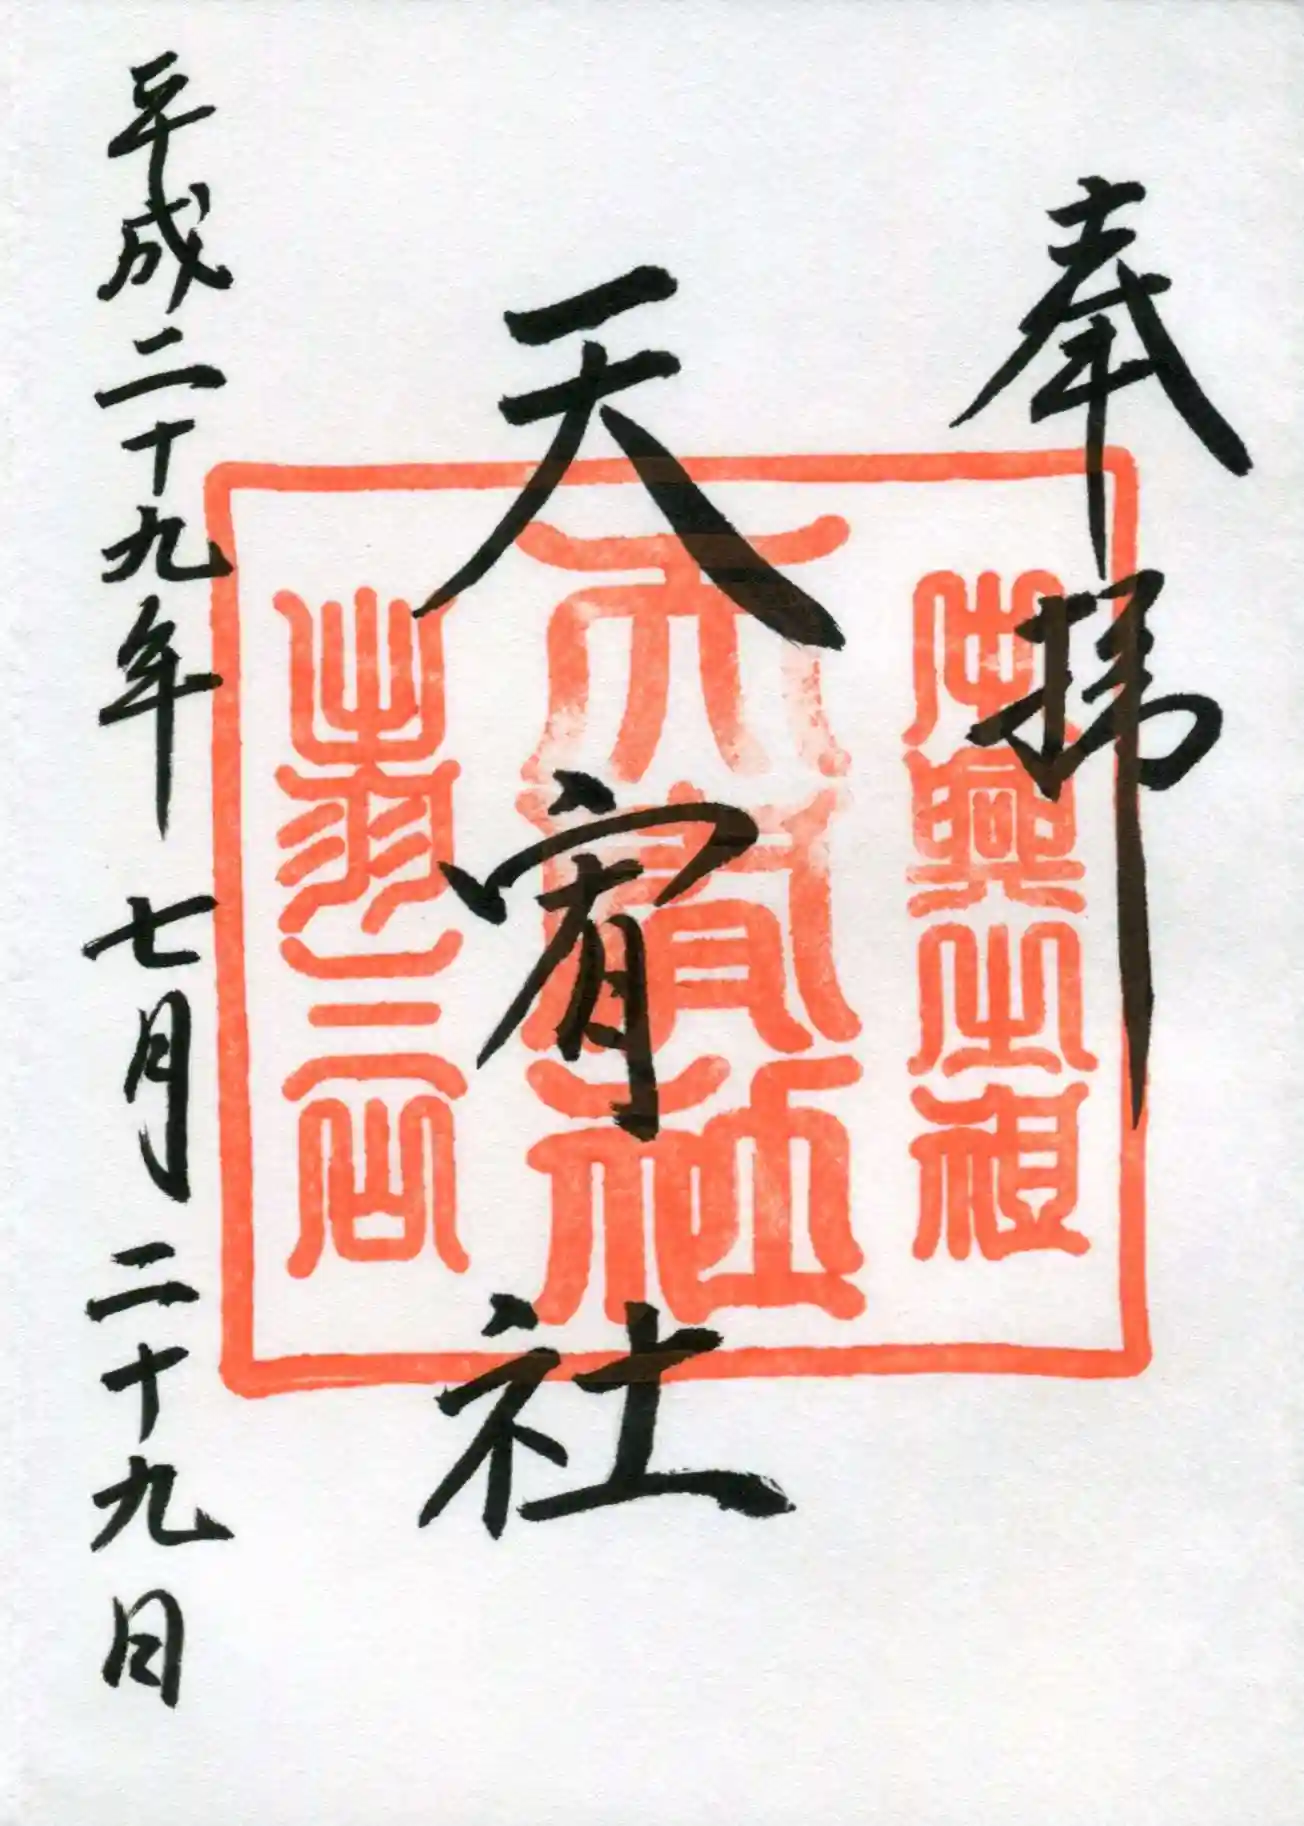 奉拝
天宥社
平成二十九年 七月 二十九日
中興之祖
天宥社
出羽三山